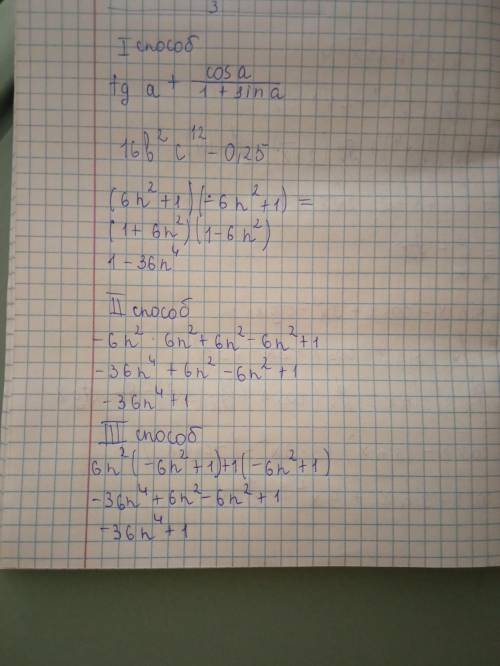 3
I способ
tg a + cos a / 1 + sin a
16b² c¹² - 0,25
(6n² + 1)(-6n² + 1) =
(1 + 6n²)(1 - 6n²)
1 - 36n⁴
II способ
-6n² · 6n² + 6n² - 6n² + 1
-36n⁴ + 6n² - 6n² + 1
-36n⁴ + 1
III способ
6n²(-6n² + 1) + 1(-6n² + 1)
-36n⁴ + 6n² - 6n² + 1
-36n⁴ + 1